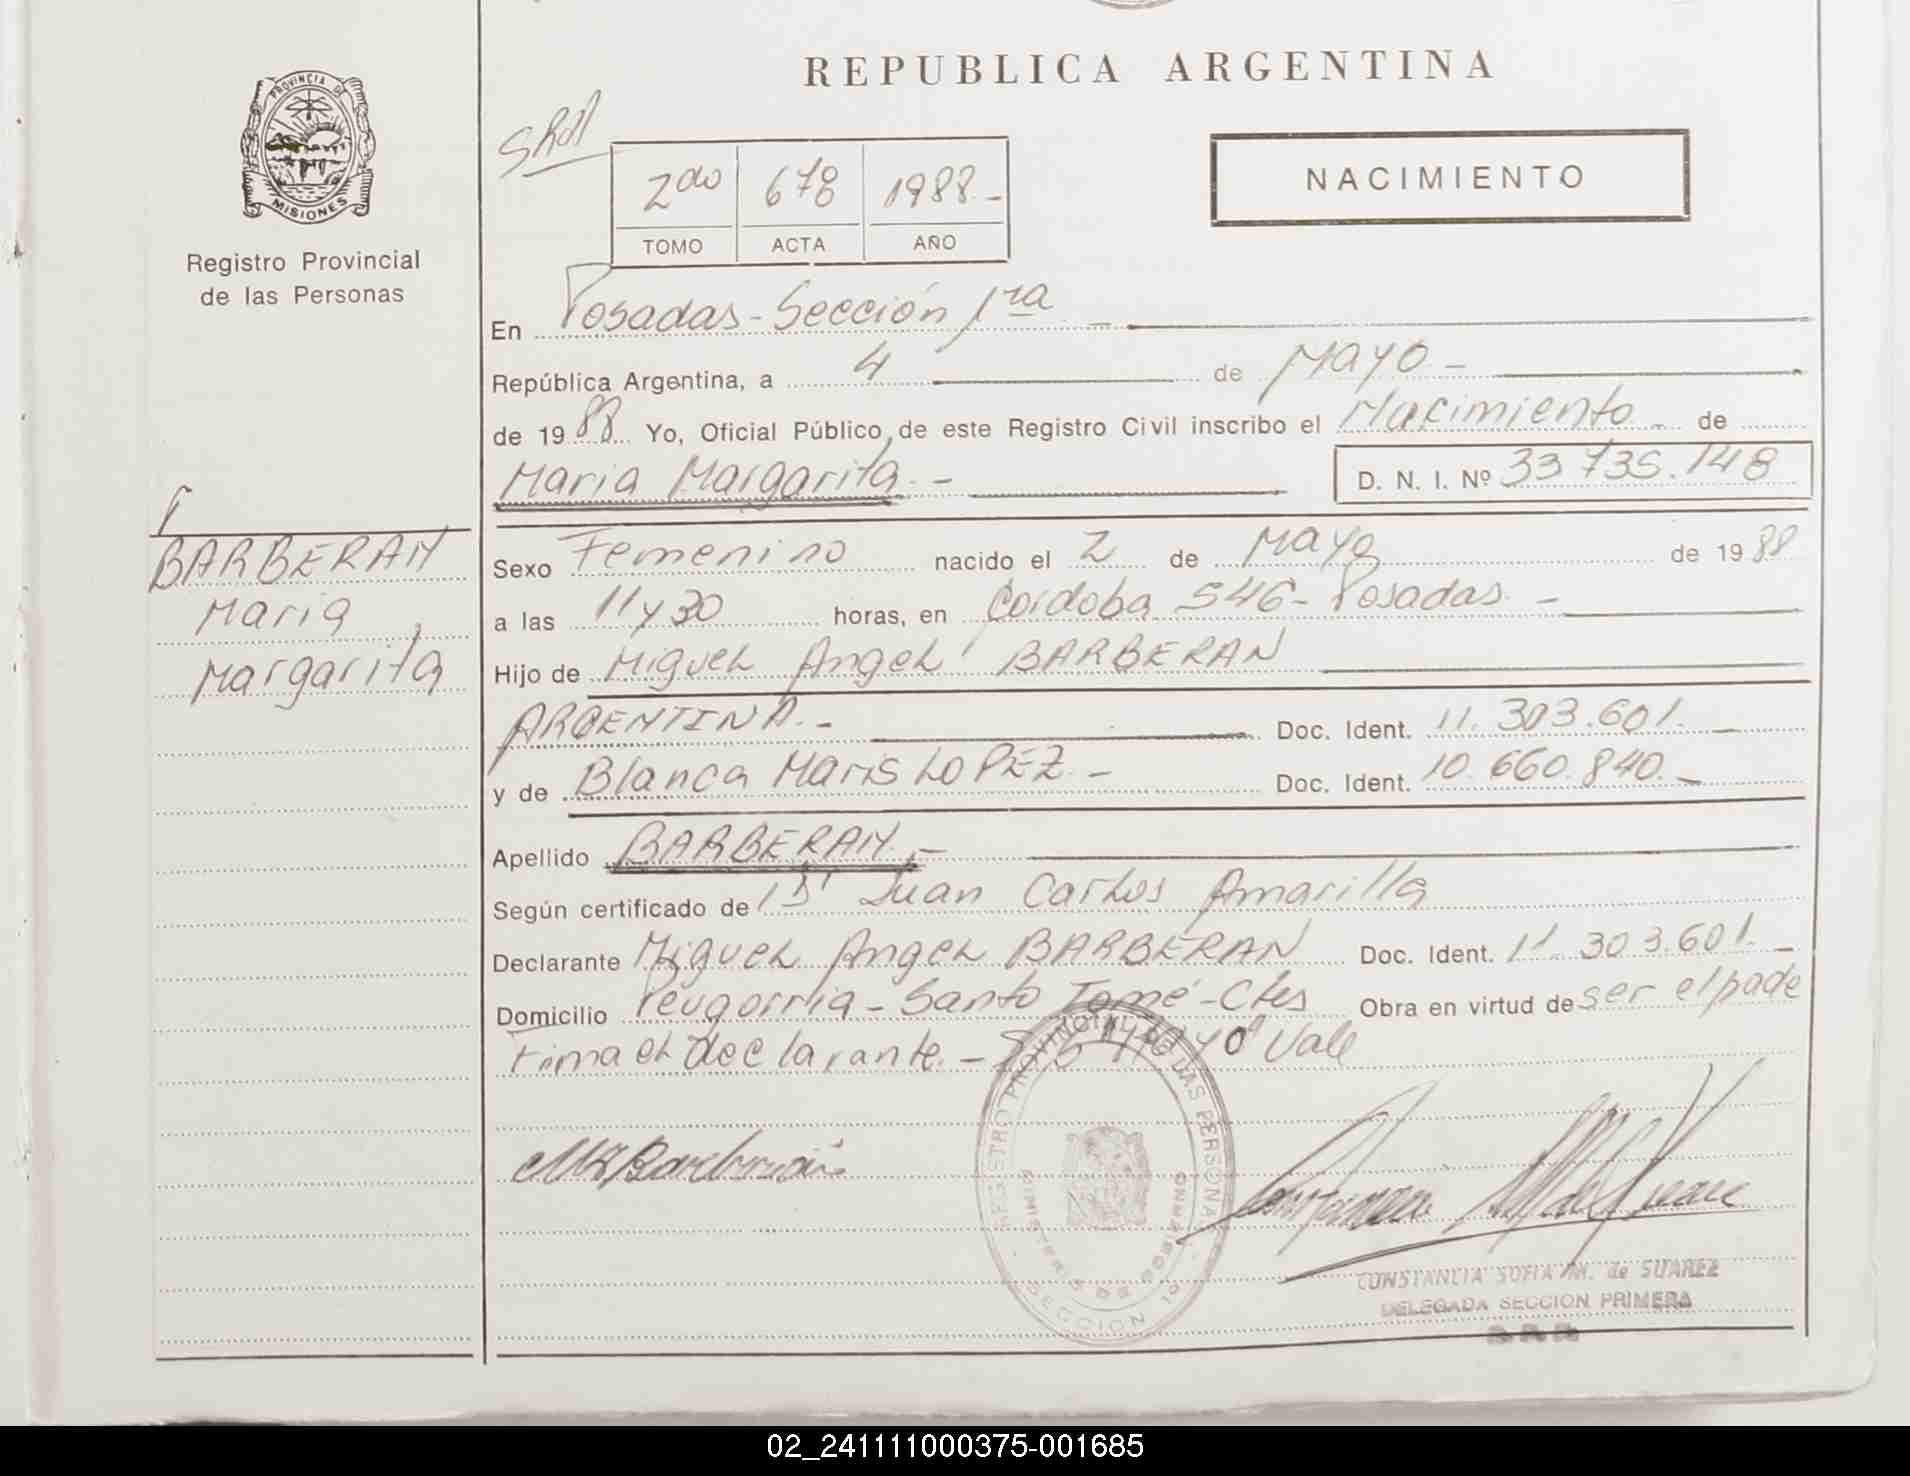 REPUBLICA ARGENTINA
PROVINCIA DE
MISIONES
Registro Provincial
de las Personas
2do 678 1988.-
TOMO ACTA AÑO
NACIMIENTO
En Posadas - Sección 1ra -
República Argentina, a 4 de Mayo -
de 1988 Yo, Oficial Público de este Registro Civil inscribo el Nacimiento de
Maria Margarita - D. N. I. Nº 33 735.148
BARBERAN
Maria
Margarita
Sexo Femenino nacido el 2 de Mayo de 1988
a las 11 y 30 horas, en Cordoba 546 - Posadas -
Hijo de Miguel Angel BARBERAN
ARGENTINA.- Doc. Ident. 11.303.601.
y de Blanca Maris LOPEZ - Doc. Ident. 10.660.840.-
Apellido BARBERAN.-
Según certificado de Juan Carlos Amarilla
Declarante Miguel Angel BARBERAN Doc. Ident. 11.303.601.-
Domicilio - Santo Tomé - Ctes Obra en virtud de ser el pade
Firma el declarante.- Vale
REGISTRO PROVINCIAL DE LAS PERSONAS
MINISTERIO DE GOBIERNO
SECCION 1º
CONSTANCIA SOFIA M. de SUAREZ
DELEGADA SECCION PRIMERA
02_241111000375-001685